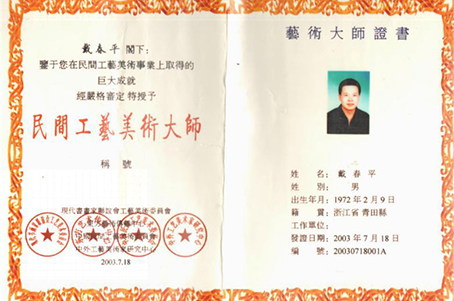 戴春平 閣下:
鑒于您在民間工藝美術事業上取得的
巨大成就
經嚴格審定 特授予
民間工藝美術大師
稱 號
現代書畫家聯誼會工藝美術委員會
2003.7.18
藝術大師證書
姓 名: 戴 春 平
性 別: 男
出生年月: 1972年2月9日
籍 貫: 浙江省 青田縣
工作單位:
發證日期: 2003年7月18日
編 號: 20030718001A